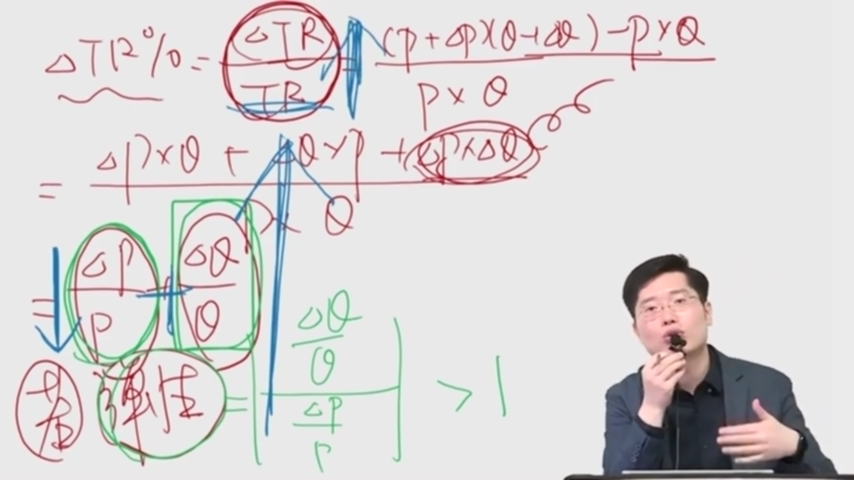 ΔTR% = ΔTR/TR = ((P+ΔP)(Q+ΔQ)-P×Q)/(P×Q)
= (ΔP×Q + ΔQ×P + ΔP×ΔQ)/(P×Q)
= ΔP/P + ΔQ/Q
若 弹性 = |(ΔQ/Q)/(ΔP/P)| > 1